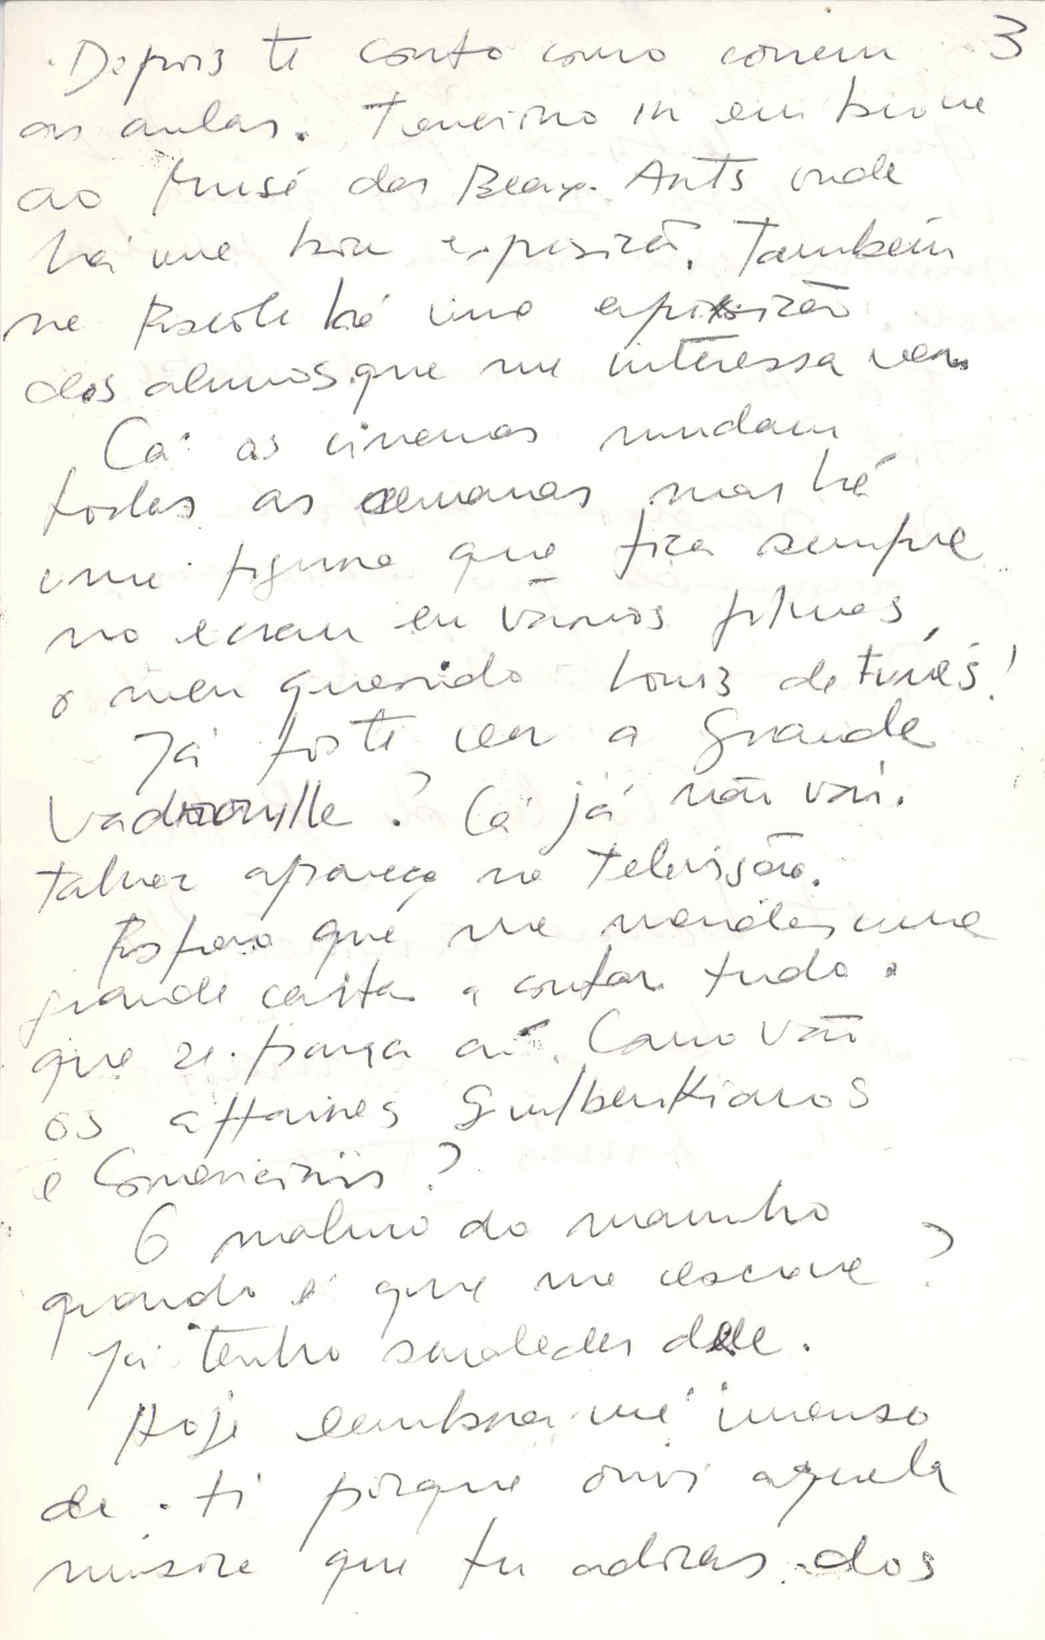 3
Depois te conto como correm
as aulas. Tenciono ir em breve
ao Musé das Beaux-Arts onde
há uma boa exposição. Também
na Escola há uma exposição
dos alunos que me interessa ver.
Cá os cinemas mudam
todas as semanas mas há
uma figura que fica sempre
no ecran em vários filmes,
o meu querido Louis de Funés!
Já foste ver a Grande
Vadrouille? Cá já não vai.
talvez apareça na televisão.
Espero que me mandes uma
grande carta a contar tudo o
que se passa aí. Como vão
os affaires Gulbenkianos
e ?
O malvado do
quando é que me escreve?
Já tenho saudades dele.
Hoje lembrei-me imenso
de ti porque ouvi aquela
música que tu adoras dos